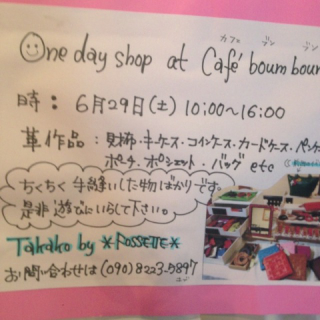 カフェ ブン ブン
One day shop at Café boum boum
時：6月29日(土) 10:00～16:00
革作品：財布・キーケース・コインケース・カードケース・ペンケ
ポーチ・ポシェット・バッグ etc
ちくちく 手縫いした物ばかりです。
是非 遊びにいらして下さい。
Takako by ＊FOSSETTE＊
お問い合わせは (090) 8223-5897